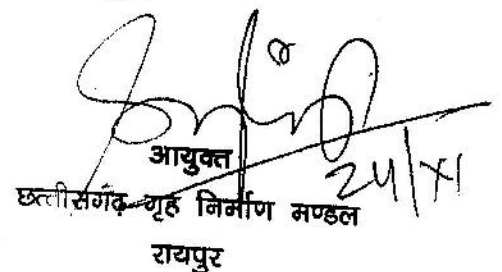 आयुक्त
24/XI
छत्तीसगढ़ गृह निर्माण मण्डल
रायपुर